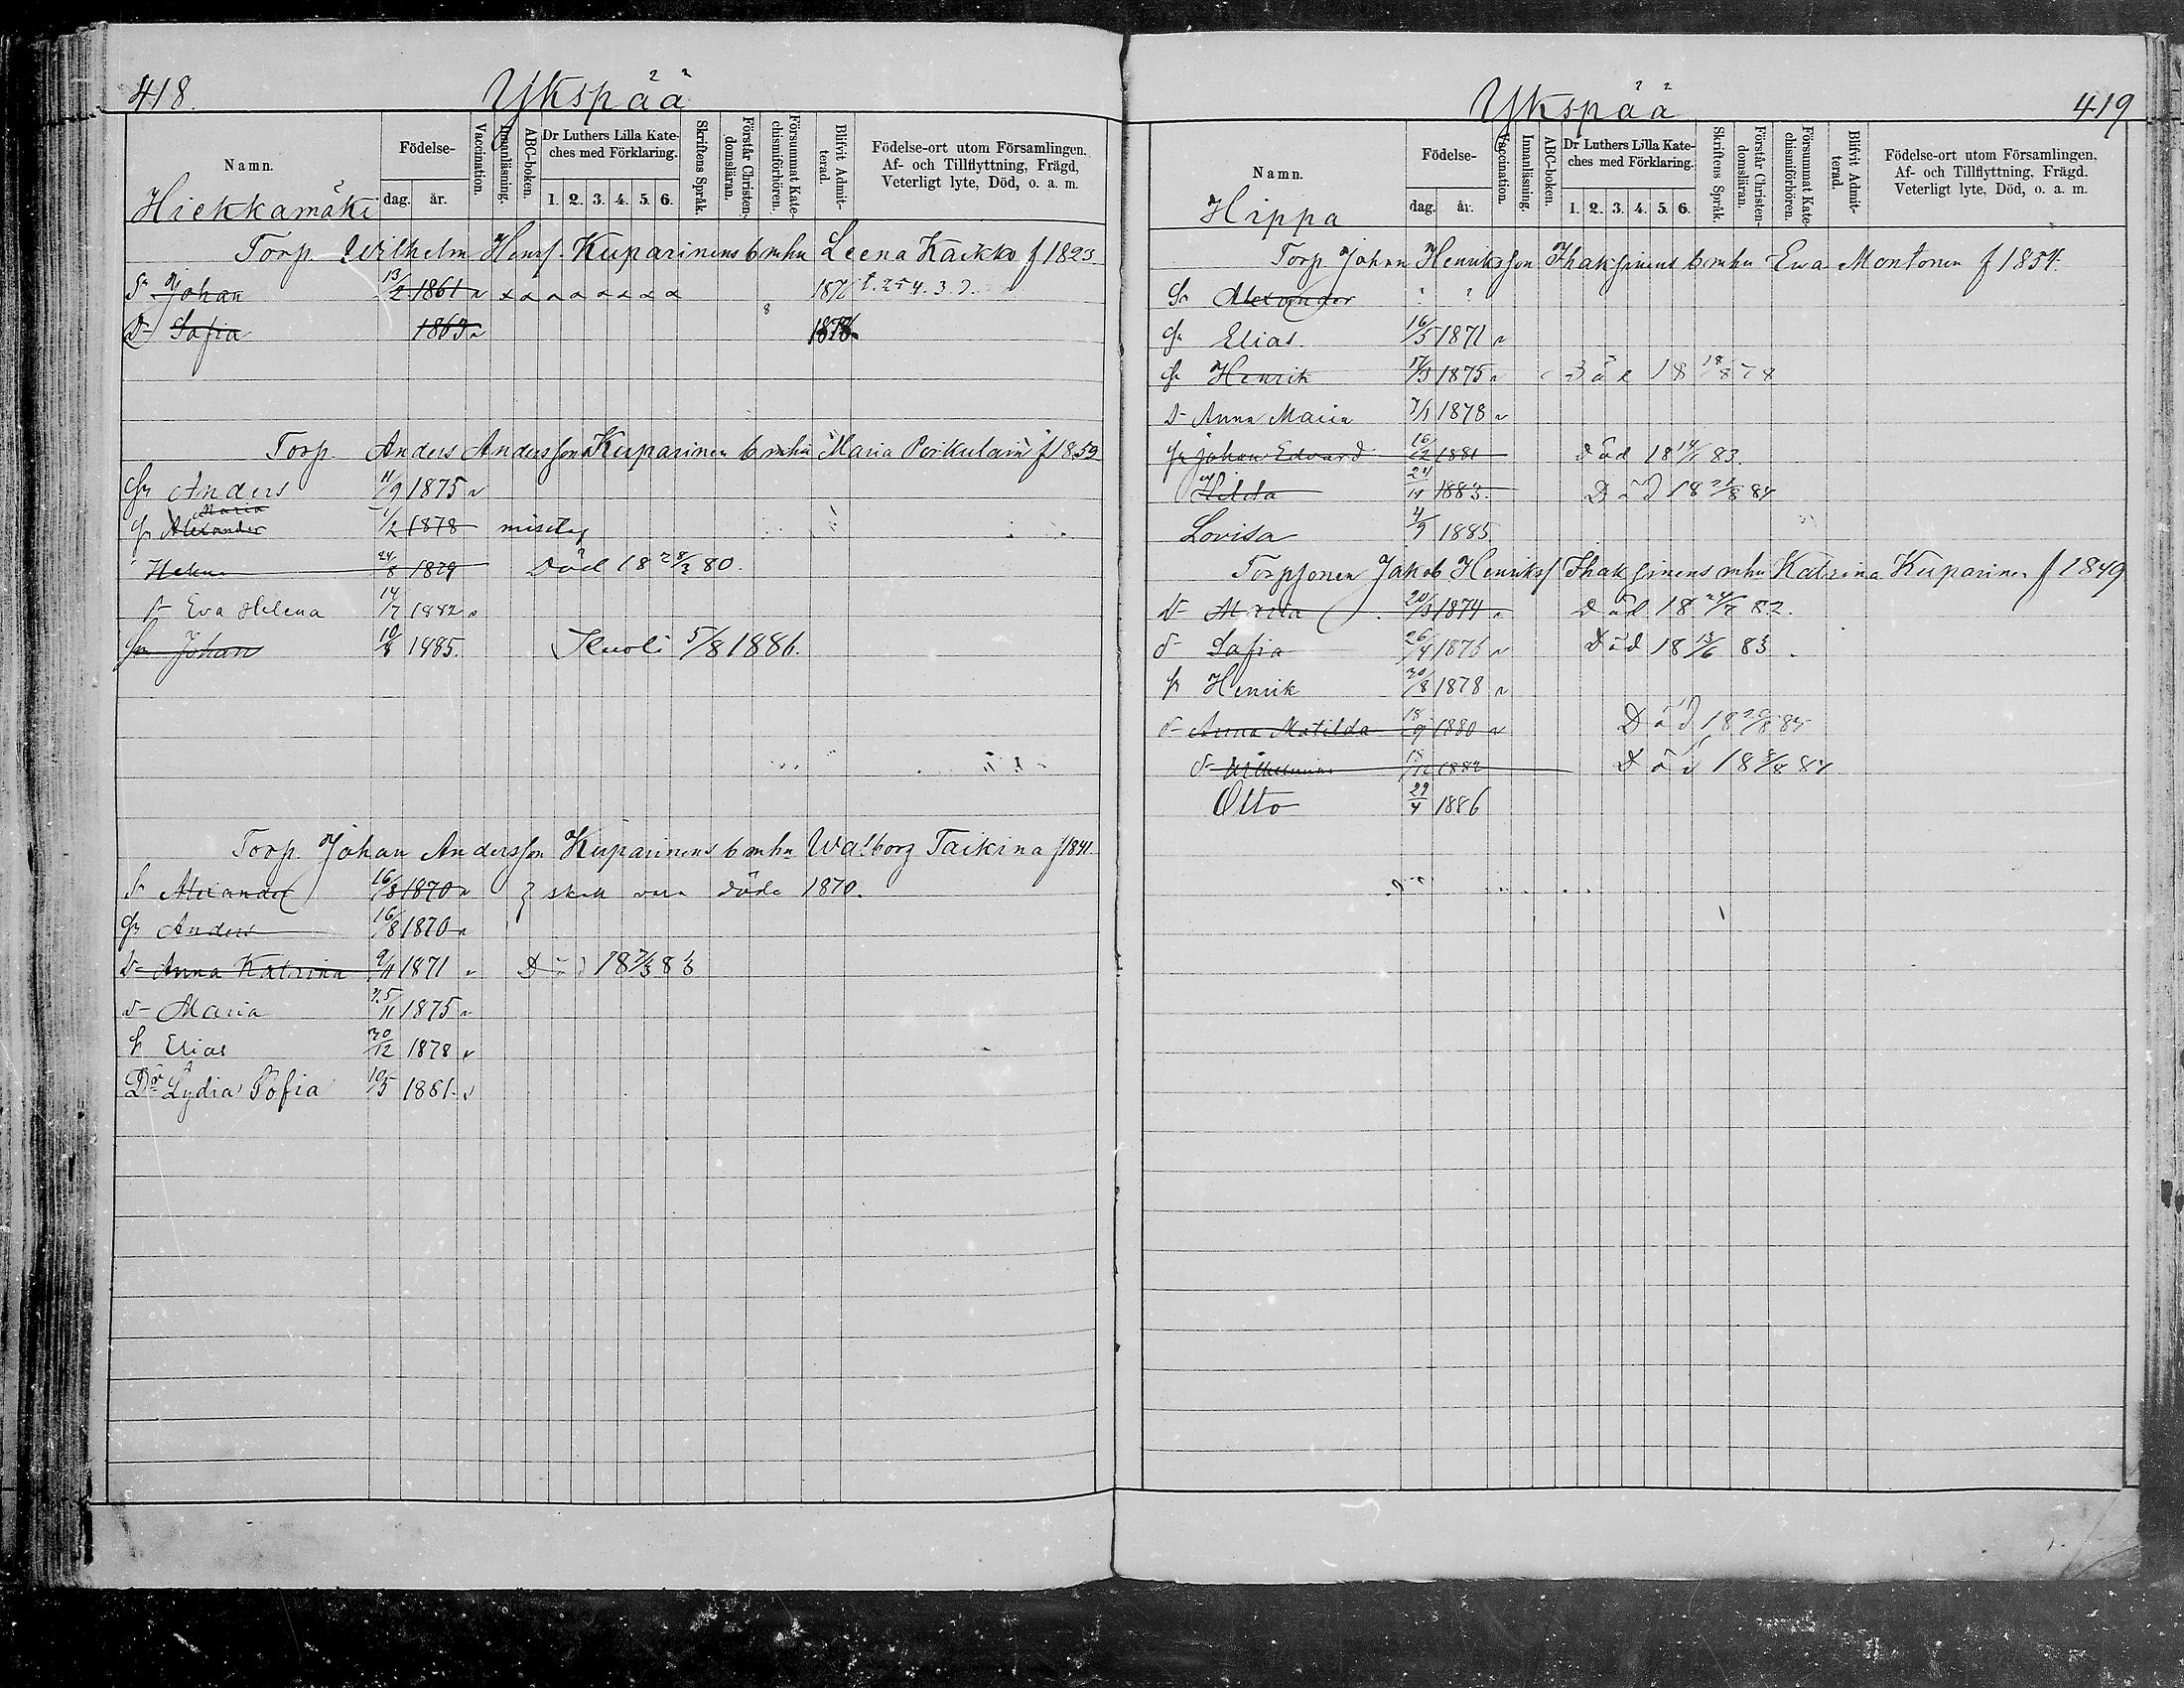 418.
Ykspää
Namn.
Födelse-
dag.
år.
Vaccination.
Innanläsning.
ABC-boken.
Dr Luthers Lilla Kate-
ches med Förklaring.
1. 2. 3. 4. 5. 6.
Skriftens Språk.
Förstår Christen-
domsläran.
Försummat Kate-
chismiförhören.
Blifvit Admit-
terad.
Födelse-ort utom Församlingen.
Af- och Tillflyttning, Frägd,
Veterligt lyte, Död, o. a. m.
Hiekkamäki
Torp. Wilhelm Henrs. Kuparinens b mhu Leena Kaikko f 1823
Sn Johan 13/2 1861
D- Safia 1863 1878
Torp. Anders Andersson Kuparinen b mhu Maria f 1859
Sn Anders 11/9 1875
Maria
Sn Alexander 1/2 1878 misstag
24/8 1879 Död 18 28/2 80.
D- Eva Helena 14/7 1882
Sn Johan 10/8 1885. Kuoli 5/8 1886.
Torp. Johan Andersson Kuparinens b mhu Walborg Taikina f 1841
S Alexander 16/8 1870 } skall vara döde 1870.
Sn Anders 16/8 1870
D- Anna Katrina 9/11 1871 Död 18 7/3 83
D- Maria 25/11 1875
S Elias 30/12 1878
Dr Lydia Sofia 10/5 1881
Ykspää
419
Namn.
Födelse-
dag.
år.
Vaccination.
Innanläsning.
ABC-boken.
Dr Luthers Lilla Kate-
ches med Förklaring.
1. 2. 3. 4. 5. 6.
Skriftens Språk.
Förstår Christen-
domsläran.
Försummat Kate-
chismiförhören.
Blifvit Admit-
terad.
Födelse-ort utom Församlingen,
Af- och Tillflyttning, Frägd.
Veterligt lyte, Död, o. a. m.
Hippa
Torp. Johan Henriksson Ihaksinens b mhu Eva Montonen f 1854.
Sn Alexander ? ?
Sn Elias 16/5 1871
Sn Henrik 17/3 1875 Död 18 18/8 78
D- Anna Maria 7/1 1878
Sn Johan Edvard 16/2 1881 Död 18 83.
Hilda 1883. Död 18 21/8 84
Lovisa 4/9 1885
Torpsonen Jakob Henrikss Ihaksinens mhu Katrina Kuparinen f 1849
D- Maria 20/3 1874 Död 18 24/7 82.
D- Safia 26/4 1876 Död 18 13/6 83
S Henrik 30/8 1878
D- Anna Matilda 18/9 1880 Död 18 20/8 84
D- Wilhelmina 1882 Död 18 84
Otto 29/4 1886